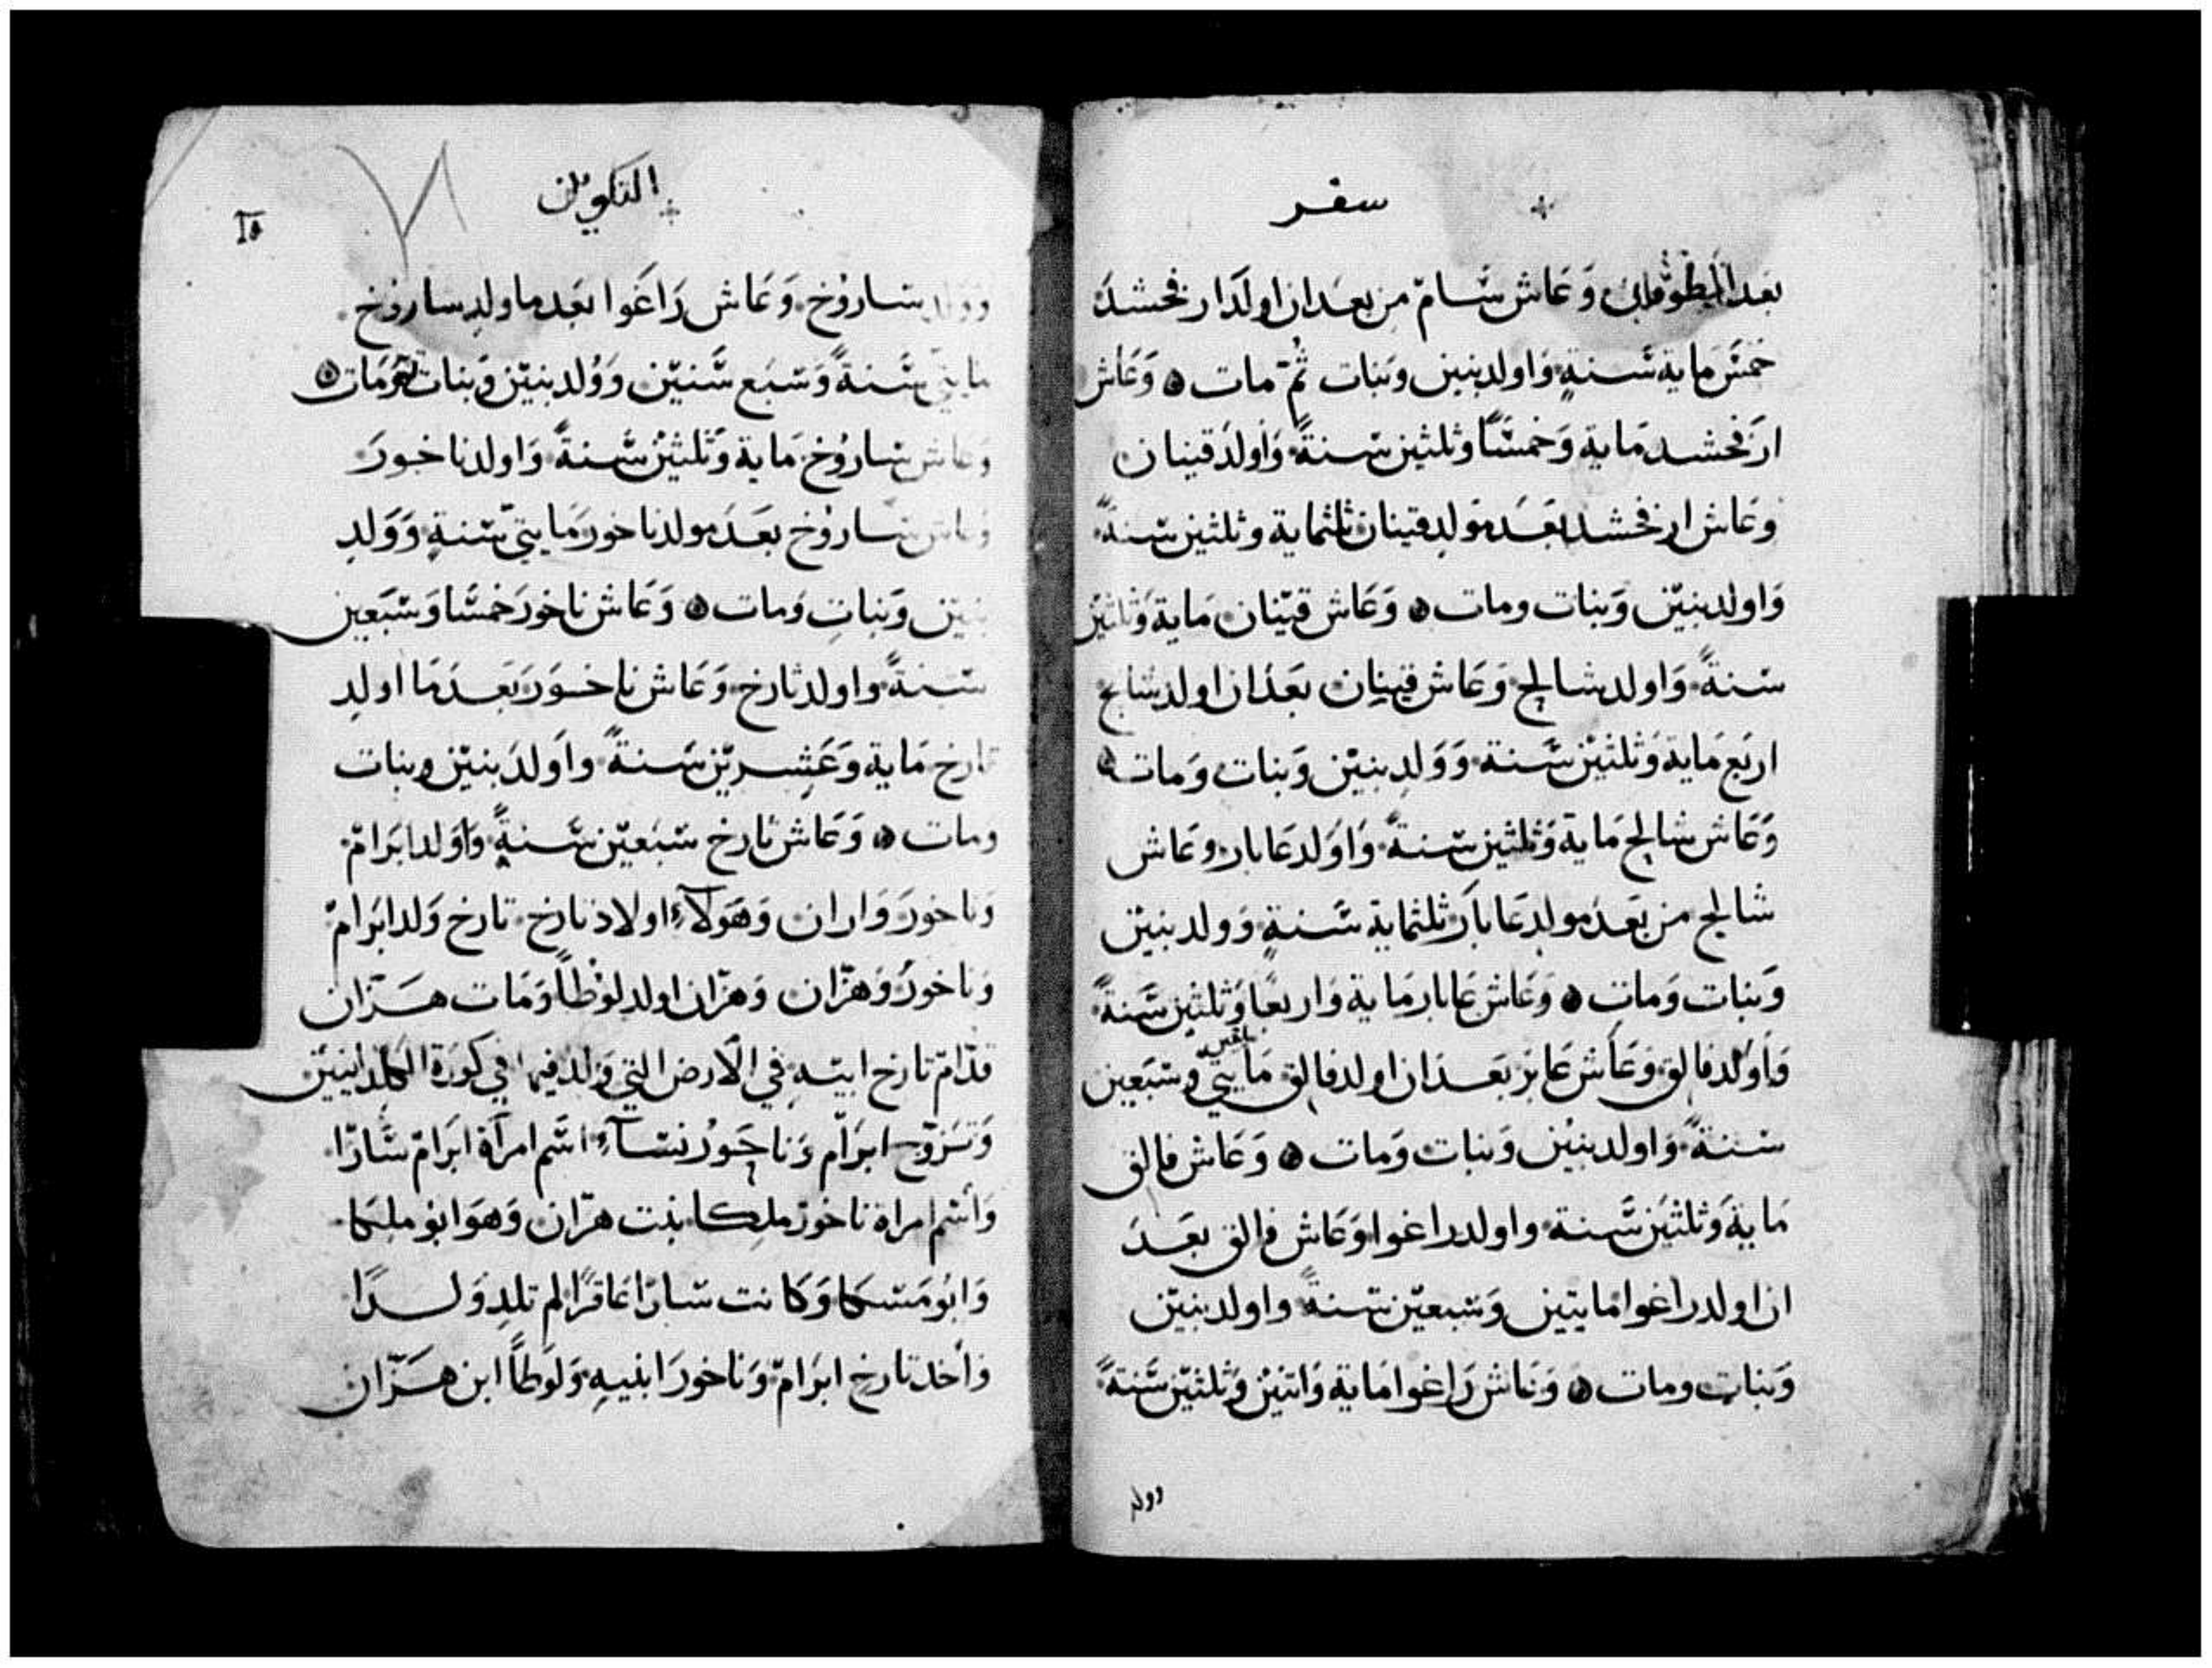 سفر
بعد الطوفان وَعَاش سَّام من بعد ان اولَد ارفخشدَ
خمسَ ماية سَّنةٍ وَاولد بنين وبنات ثُمّ مات وَعَاش
ارفخشد مَاية وَخمسًا وثلثين سنةً وَاولَد قينان
وعَاش ارفخشد بعَد مَولد قينان ثلثماية وثلثين سنةً
وَاولد بنيّن وَبنات ومات وَعَاش قينان مَاية وَثلثين
سنةً وَاولد شالح وَعَاش قينان بعَد ان اولد شالح
اربَع مَاية وَثلثيّن سَّنة وَوَلد بنيّن وَبنات وَمات
وَعَاش شالح مَاية وَثلثين سنةً وَاوَلد عَابار وعَاش
شالح من بعَد مَولد عَابارَ ثلثماية سَّنةٍ وَولد بنيّن
وَبنات وَمات وَعَاش عَابار مَاية وَاربعًا وَثلثين سَّنةً
وَاوَلد فالق وَعَاش عَابر بعَد ان اولد فالق مَايتي وسَبَعين
سنةً وَاولد بنيْن وَبنات وَمات وَعَاش فالق
مَاية وَثلثيَن سَّنة واولد راغوا وَعَاش فالق بعَدَ
ان اولد راغوا مايتين وَسَبعيّن سَّنةً واولد بنيّن
وَبنات ومات وَعَاش رَاغوا مَاية وَاتنيْن وَثلثيّن سَّنةً
وولد
التكوين
١٥
وَولد سَاروُخ وَعَاش رَاغَوا بعَد ما ولد ساروُخ
مايتيّ سَّنةً وَسَبَع سَّنيّن وَوُلد بنيّن وَبنات وَمَات
وَعاش سَاروُخ مَاية وَثلثيْن سَّنةً وَاولد ناخورَ
وَعاش سَاروُخ بعَدَ مولد ناخورَ مَايتيّ سَّنةٍ وَوَلد
بنيّن وَبناتِ وَمات وَعَاش ناخورَ خمسًّا وَسَّبَعين
سَّنةً واولد تارخ وَعَاش ناخورَ بَعَدَ مَا اولد
تارخ مَاية وَعَشِريّن سَنةً واَولدَ بنيّن وبنات
ومات وَعَاش تارخ سَبَعيّن سَّنةٍ وَاوَلد ابَرامّ
وَناخورَ وَاران وَهَولآءِ اولاد تارخ تارخ وَلد ابَرامّ
وَناخورُ وَهرّان وَهرّان اولد لوُطاً وَمَات هَرّان
قدّامّ تارخ ابيّهِ في الَارض التي وَلد فيها في كورَة الكلدانيّيَن
وَتَزوّج ابرَآم وَناحَورُ نسَّاءً اسّم امرآة ابرَامّ سَّارّا
وَاسّم امراة ناخورّ ملكا بنت هرّان وَهوَ ابو ملكا
وَابوُ مَسّكا وَكَانت سَّارّا عَاقرًا لم تلدِ وَلدًا
وَاَخد تارخِ ابرَامّ وَناخورَ ابنيهِ وَلوَطاً ابن هَرّان